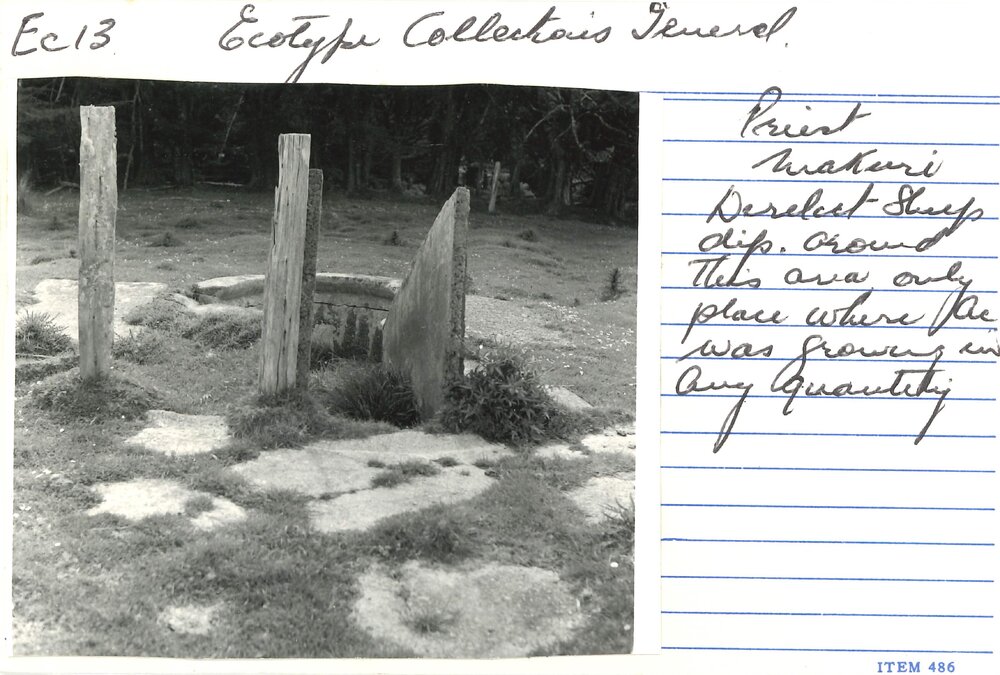 Ec13 Ecotype Collections General.
Priest
Makuri
Derelect Sheep
dip. around
this area only
place where Ac
was growing in
any quantity
ITEM 486